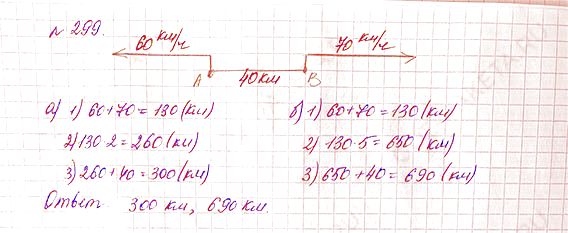 № 299.
60 км/ч 70 км/ч
А 40 км В
а) 1) 60+70=130 (км) б) 1) 60+70=130 (км)
2) 130·2=260 (км) 2) 130·5=650 (км)
3) 260+40=300 (км) 3) 650+40=690 (км)
Ответ 300 км, 690 км.